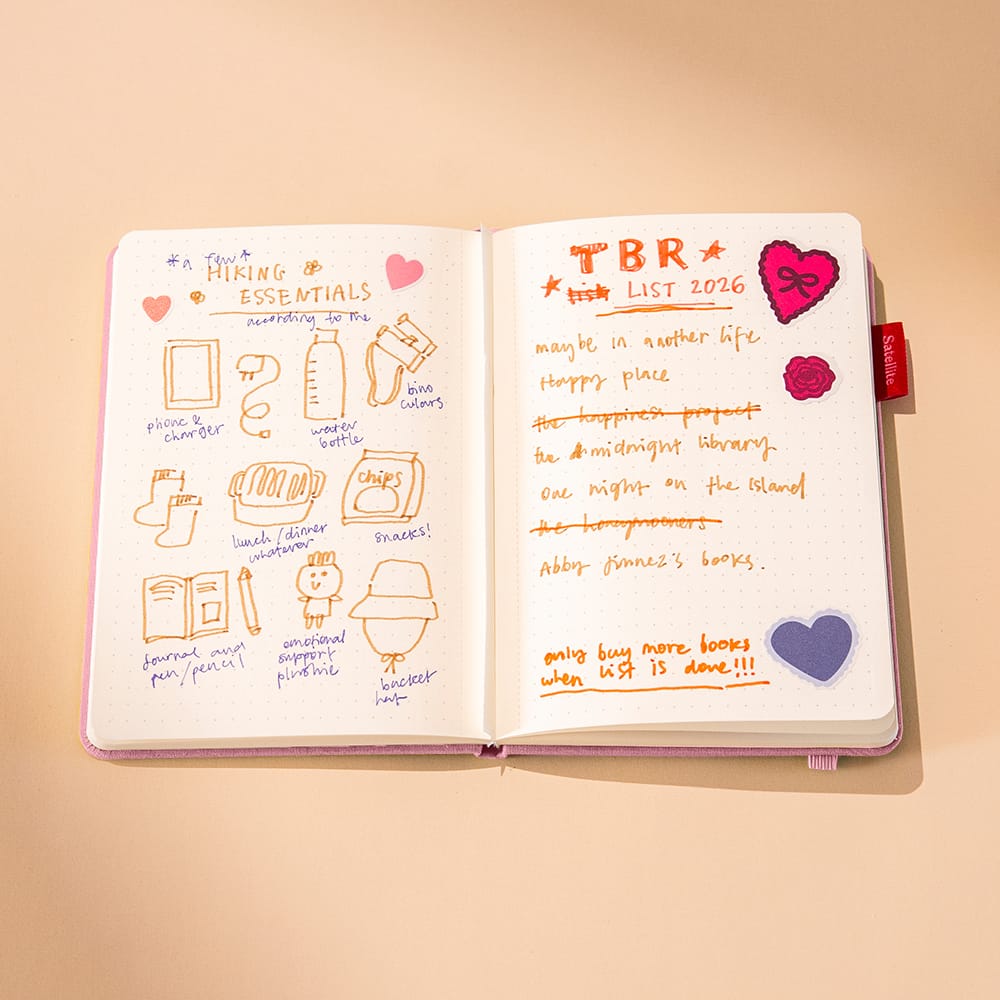 *a few*
HIKING
ESSENTIALS
according to me
phone &
charger
water
bottle
bino
culars
lunch/dinner
whatever
chips
snacks!
journal and
pen/pencil
emotional
support
plushie
bucket
hat
TBR
list LIST 2026
maybe in another life
Happy place
the happiness project
the midnight library
one night on the island
the honeymooners
Abby Jimnez's books.
only buy more books
when list is done!!!
Satellite